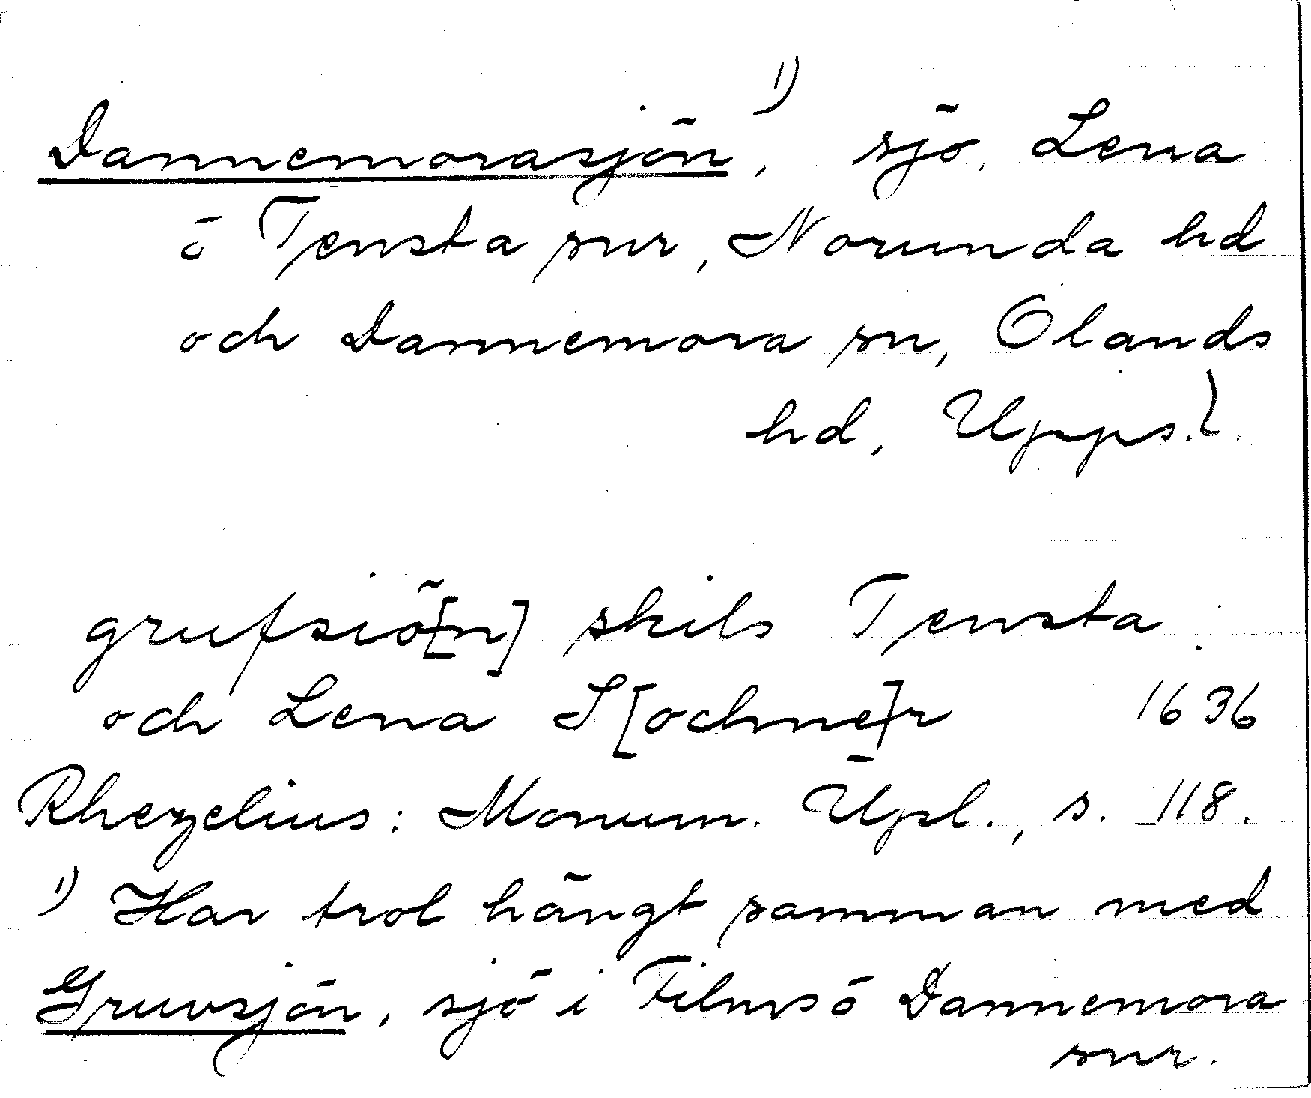 Dannemorasjön¹⁾, sjö, Lena
o Tensta snr, Norunda hd
och Dannemora sn, Olands
hd, Upps. l.
grufsiö[n] skils Tensta
och Lena S[ochne]r 1636
Rhezelius: Monum. Üpl., s. 118.
¹⁾ Har trol hängt samman med
Gruvsjön, sjö i Films o Dannemora
snr.